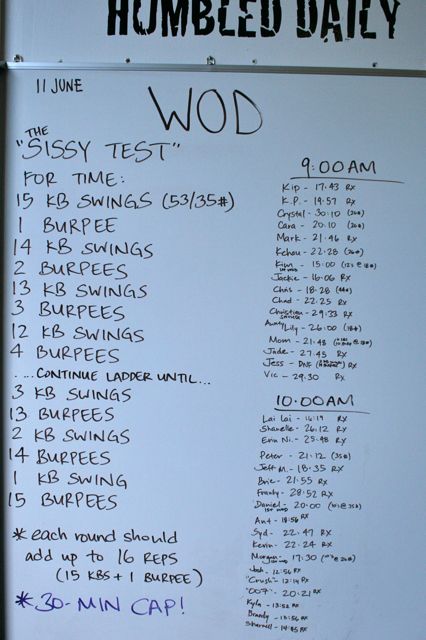 HUMBLED DAILY
11 JUNE
WOD
THE
"SISSY TEST"
FOR TIME:
15 KB SWINGS (53/35#)
1 BURPEE
14 KB SWINGS
2 BURPEES
13 KB SWINGS
3 BURPEES
12 KB SWINGS
4 BURPEES
....CONTINUE LADDER UNTIL...
3 KB SWINGS
13 BURPEES
2 KB SWINGS
14 BURPEES
1 KB SWING
15 BURPEES
* each round should
add up to 16 REPS
(15 KBS + 1 BURPEE)
* 30-MIN CAP!
9:00AM
Kip - 17:43 RX
K.P. - 19:57 RX
Crystal - 30:10
Cara - 20:10
Mark - 21:46 RX
Kehau - 22:28
Kim - 15:00
Jackie - 16:06 RX
Chris - 18:28
Chad - 22:25 RX
Christian - 29:33 RX
Aunty Lily - 26:00 (18#)
Mom - 21:48
Jade - 27:45 RX
Jess - DNF
Vic - 29:30 RX
10:00AM
Lai Lai - 16:19 RX
Shanelle - 26:12 RX
Erin Ni. - 25:48 RX
Peter - 21:12 (35#)
Jeff M. - 18:35 RX
Brie - 21:55 RX
Frandy - 28:52 RX
Daniel - 20:00
Ant - 18:56 RX
Syd - 22:47 RX
Kevin - 22:24 RX
Morgan - 17:30
Josh - 12:56 RX
"Crush" - 12:14 RX
"007" - 20:21 RX
Kyla - 13:52 RX
Brandy - 13:56 RX
Sherrell - 14:45 RX